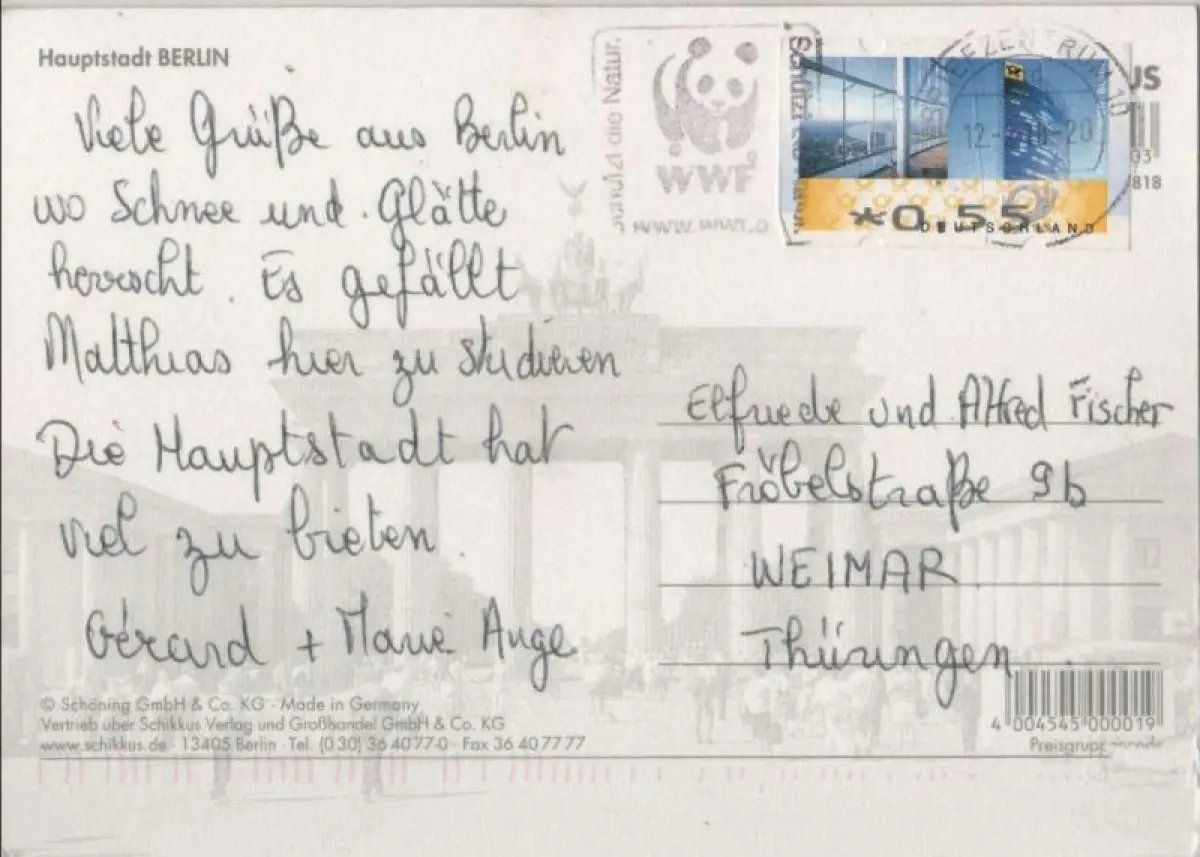 Hauptstadt BERLIN
Viele Grüße aus Berlin
wo Schnee und Glätte
herrscht. Es gefällt
Matthias hier zu studieren
Die Hauptstadt hat
viel zu bieten.
Gérard + Marie Ange
© Schöning GmbH & Co. KG · Made in Germany
Vertrieb über Schikkus Verlag und Großhandel GmbH & Co. KG
www.schikkus.de · 13405 Berlin Tel. (0 30) 36 40 77-0 · Fax 36 40 77 77
die Natur.
WWF
*0,55
DEUTSCHLAND
BRIEFZENTRUM 10
US
03
818
Elfriede und Alfred Fischer
Fröbelstraße 9b
WEIMAR
Thüringen
4 004545 000019